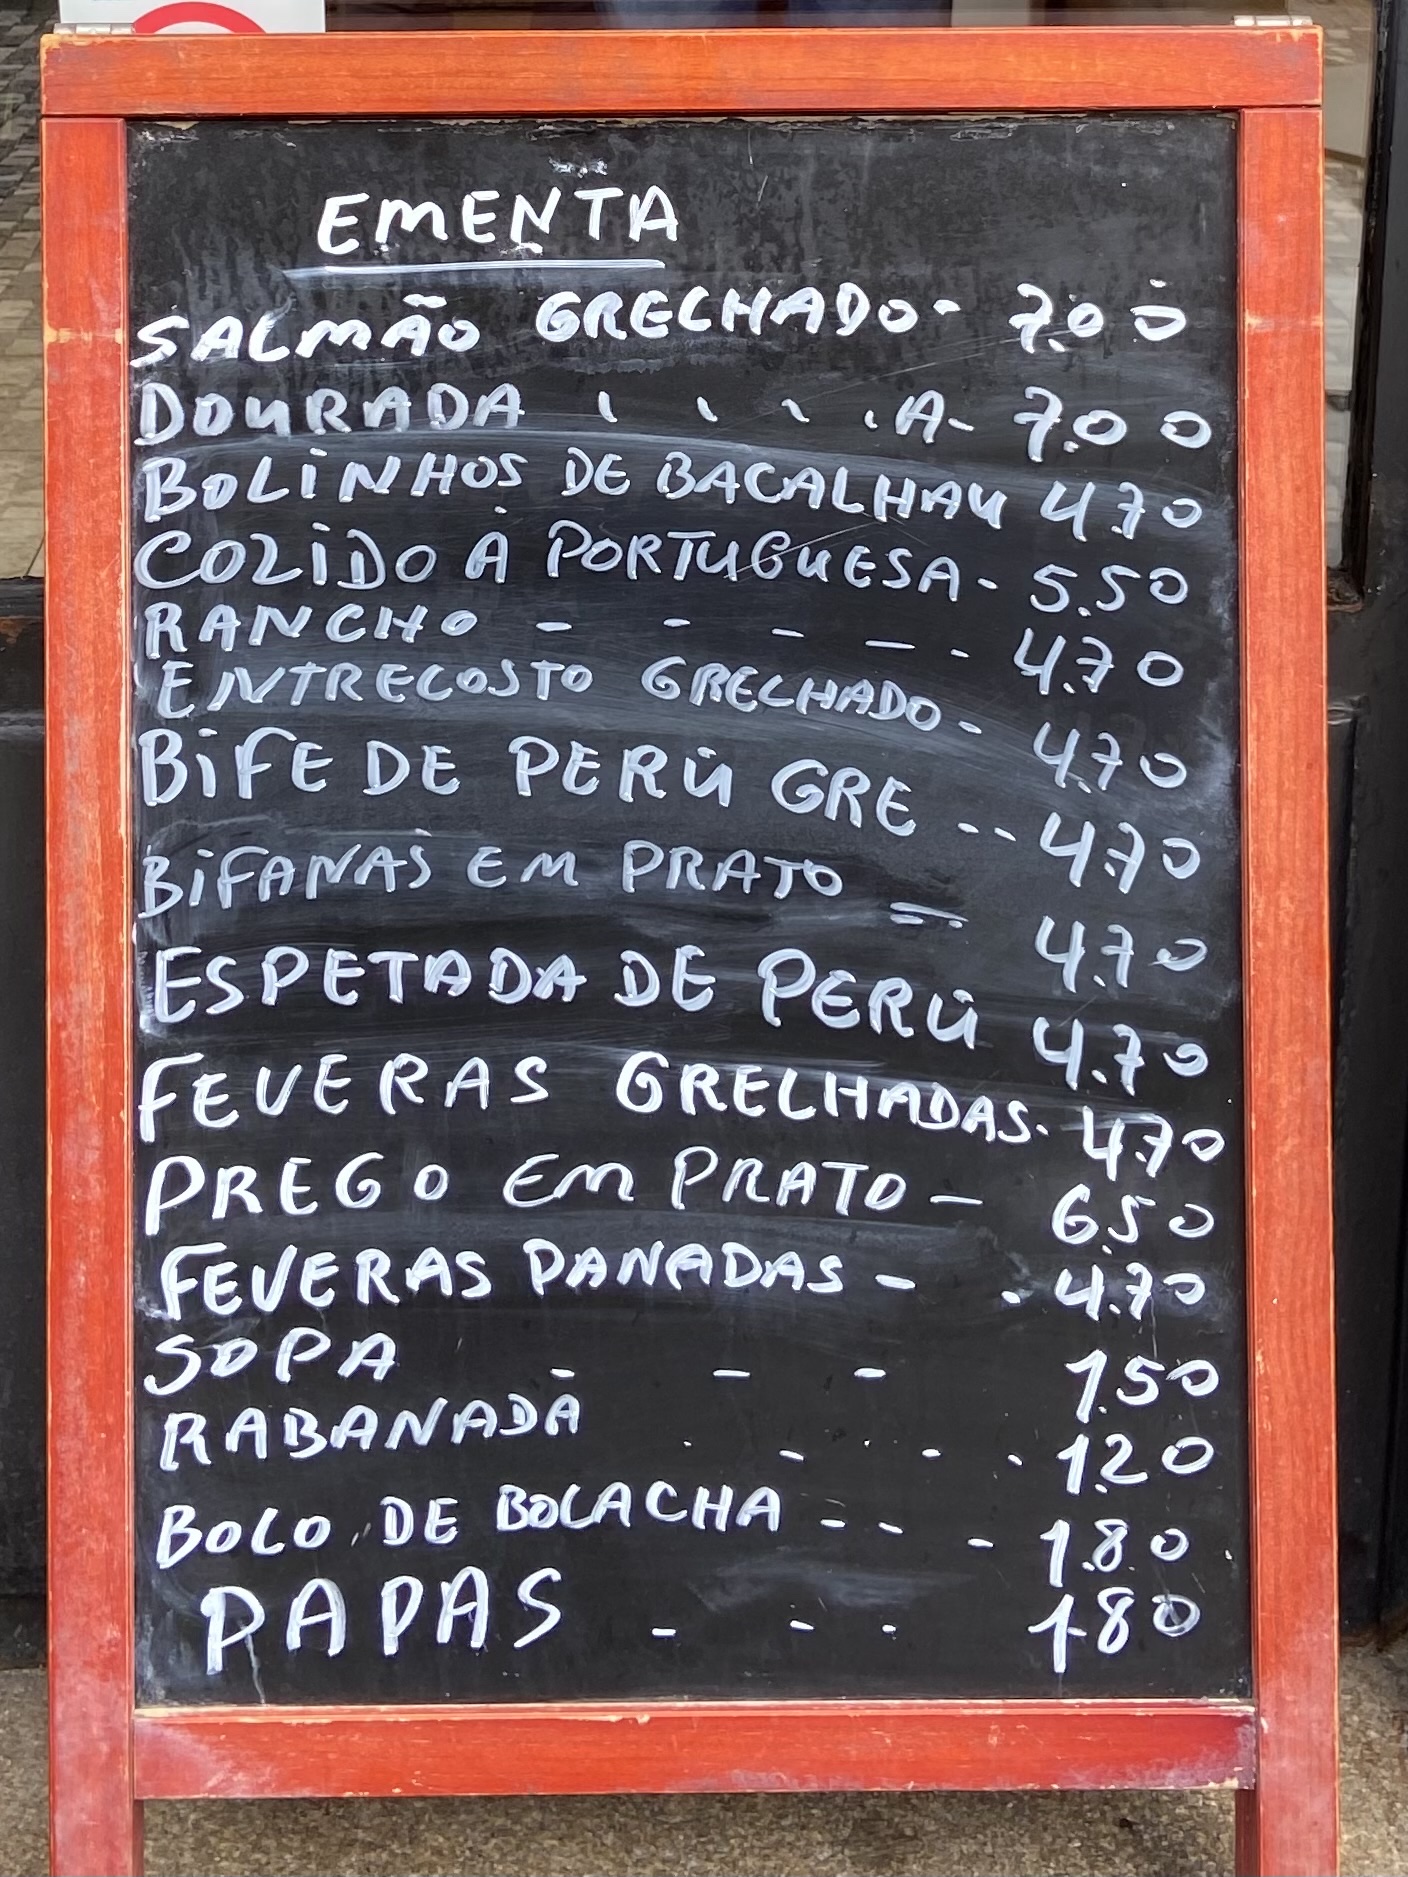 EMENTA
SALMÃO GRECHADO - 7.00
DOURADA . . . . A - 7.00
BOLINHOS DE BACALHAU 4.70
COZIDO À PORTUGUESA - 5.50
RANCHO - - - - - 4.70
ENTRECOSTO GRECHADO - 4.70
BIFE DE PERÚ GRE -- 4.70
BIFANAS EM PRATO -- 4.70
ESPETADA DE PERÚ 4.70
FEVERAS GRELHADAS - 4.70
PREGO EM PRATO - 6.50
FEVERAS PANADAS - . 4.70
SOPA - - - 1.50
RABANADA . - . - . 1.20
BOLO DE BOLACHA - - - 1.80
PAPAS - - - 1.80